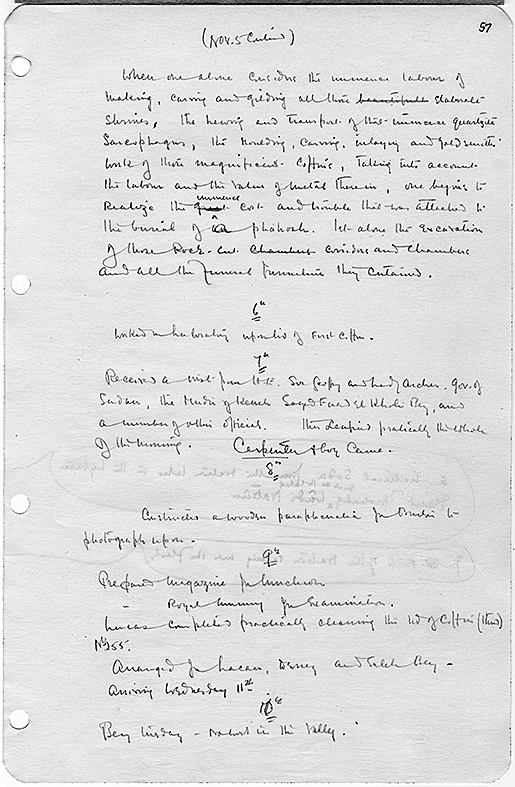 57
(Nov. 5 Contind)
When one alone considers the immense labour of
making, carving and gilding all those beautiful elaborate
shrines, the hewing and transport of that immense quartzite
Sarcophagus, the moulding, carving, inlaying and goldsmiths'
work of those magnificent coffins, taking into account
the labour and the value of metal therein, one begins to
realize the great immense cost and trouble that was attached to
the burial of a phahoah. let alone the excavation
of those Rock-cut chambers corridors and chambers
and all the funeral furniture they contained.
6th
Worked on elaborating upon lid of First Coffin.
7th
Received a visit from H.E. Sir Geofry and Lady Archer. Gov. of
Sudan, the Mudir of Keneh Sayed Fuad El Kholi Bey, and
a number of other officials. This occupied pratically the whole
of the morning. Carpenter & boy came.
8th
Constructed a wooden paraphenalia for Burton to
photograph upon.
9th
Prepared Magazine for luncheon
" Royal Mummy for Examination.
Lucas completed practically cleaning the lid of Coffin (third)
No 255.
Arranged for Lacau, Derry and Saleh Bey -
arriving Wednesday 11th
10th
Being Tuesday - no work in the Valley.